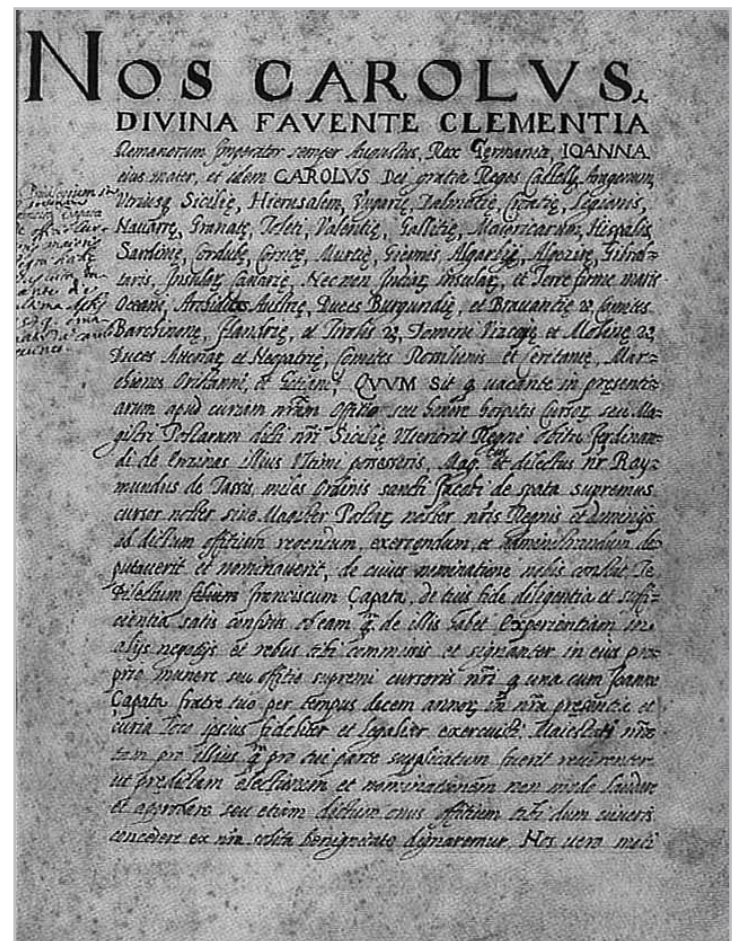 NOS CAROLVS
DIVINA FAVENTE CLEMENTIA
Romanorum Imperator semper Augustus, Rex Germanię, IOANNA
eius mater, et idem CAROLVS Dei gratia Reges Castellę, Aragonum,
Vtriusq Sicilię, Hierusalem, Vngarię, Dalmatię, Croatię, Legionis,
Nauarrę, Granatę, Toleti, Valentię, Gallitię, Maioricarum, Hispalis,
Sardinię, Cordubę, Corsicę, Murtię, Giennis, Algarbij, Algozirę, Gibral-
taris, Insular Canarię, Necnon Indiar insular, et Terre firme maris
Oceani, Archiduces Austrię, Duces Burgundię, et Brauantię &, Comites
Barchinonę, Flandrię, et Tirolis &, Domini Vizcaję et Molinę &,
Duces Athenar et Neopatrię, Comites Rossilionis et Ceritanię, Mar-
chiones Oristanni, et Gotiani, QVVM Sit q vacante in presenti-
arum apud curiam nram Offitio seu hospitis Cursor, seu Ma-
gistri Postarum dicti nri Sicilię Vlterioris Regni obitu ferdinan-
di de Enzinas illius Vltimi possessoris, Mag. et dilectus nr Ray-
mundus de Tassis, miles Ordinis sancti Jacobi de spata supremus
cursor noster siue Magister Postar, noster nris Regnis et dominijs
ad dictum offitium regendum, exercendum, et administrandum de-
putauerit et nominauerit, de cuius nominatione nobis constat, Te
Dilectum franciscum Çapata, de tuis fide diligentia et suffi-
cientia satis confisis ob eam q de illis habet Experientiam in
alijs negotijs et rebus tibi commissis et signanter in eius pro-
prio munere seu offitio supremi cursoris nri q una cum Joanne
Çapata fratre tuo per tempus decem annor in nra presentia et
curia loco ipsius fideliter et legaliter exercuisti, Maiestati nre
tam pro illius q pro tui parte supplicatum fuerit reuerenter
ut predictam electionem et nominationem non modo laudare
et approbare seu etiam dictum onus offitium tibi dum vixeris
concedere ex nra solita benignitate dignaremur. Nos uero